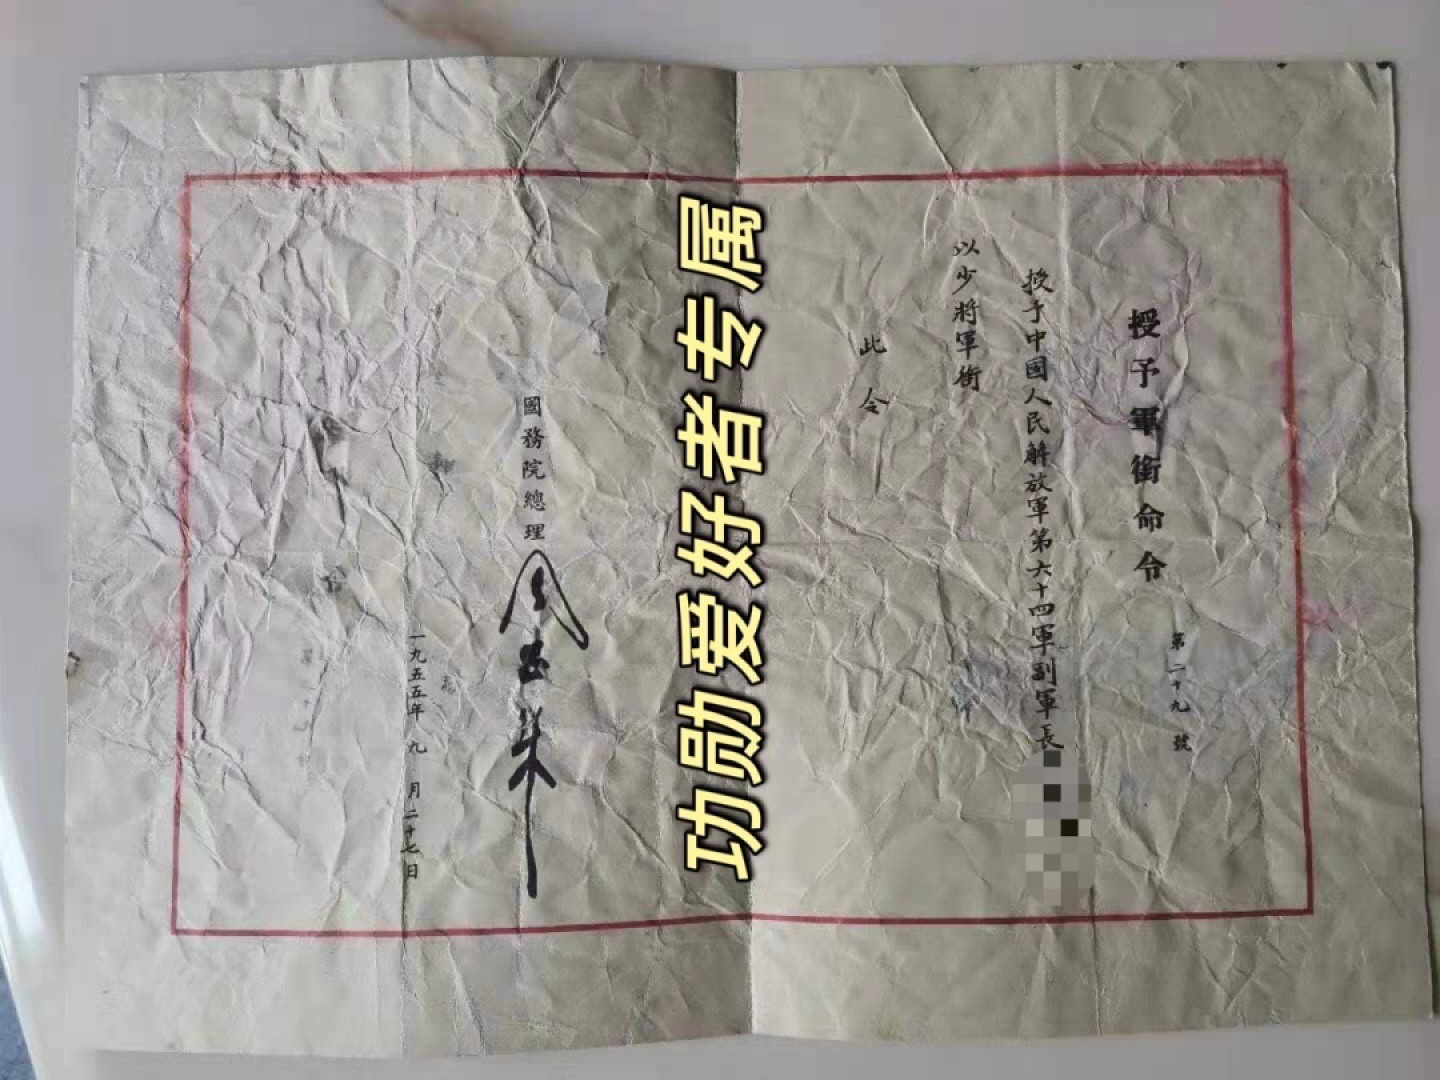 授予軍銜命令
第二十九號
授予中國人民解放軍第六十四軍副軍長
以少將軍銜
此令
國務院總理
周恩来
一九五五年九月二十七日
功勋爱好者专属